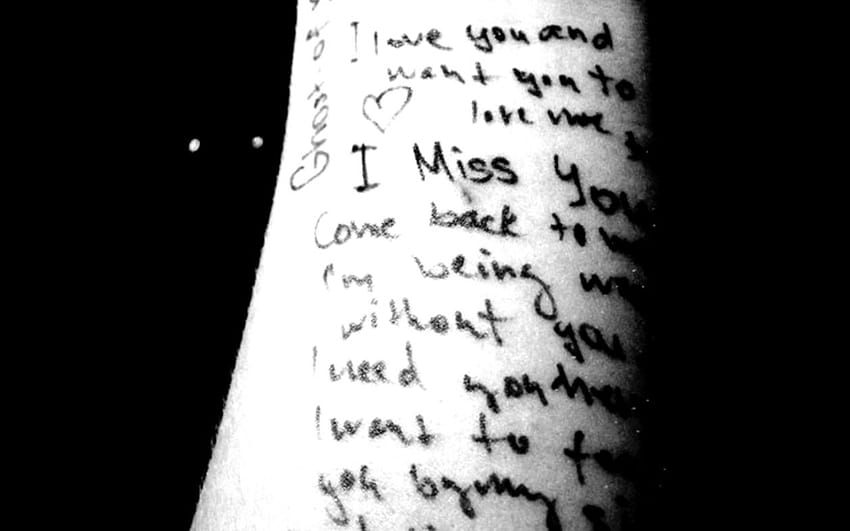 Ghost of
I love you and
want you to
love me
I Miss You
Come back to
I'm being
without you
I need you
I want to
you by my